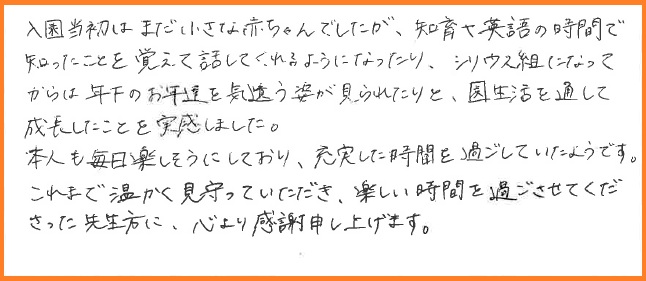 入園当初はまだ小さな赤ちゃんでしたが、知育や英語の時間で
知ったことを覚えて話してくれるようになったり、シリウス組になって
からは年下のお年達を気遣う姿が見られたりと、園生活を通して
成長したことを実感しました。
本人も毎日楽しそうにしており、充実した時間を過ごしていたようです。
これまで温かく見守っていただき、楽しい時間を過ごさせてくだ
さった先生方に、心より感謝申し上げます。